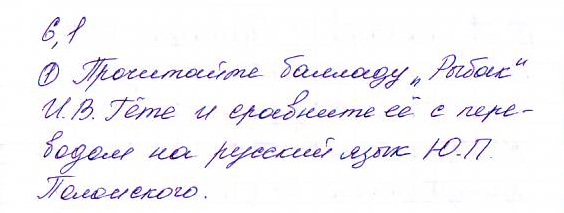 6,1
① Прочитайте балладу „Рыбак“
И.В. Гёте и сравните её с пере-
водом на русский язык Ю.П.
Полонского.